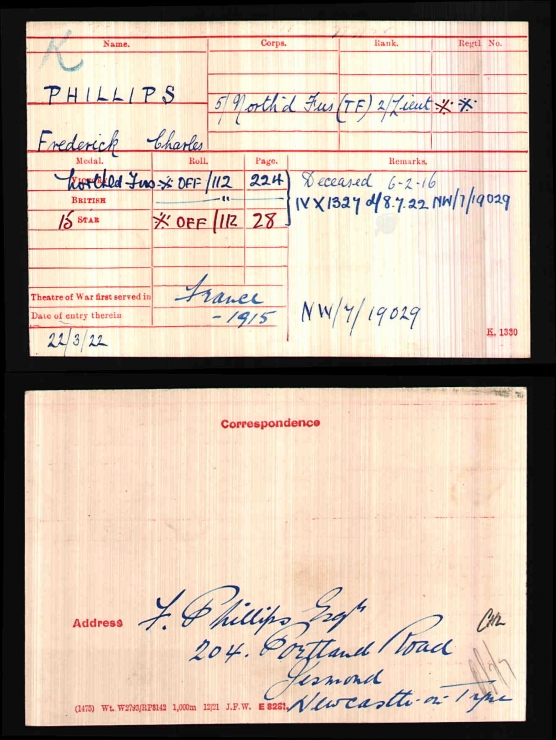 K
Name. Corps. Rank. Regtl No.
PHILLIPS
5/North'd Fus (TF) 2/Lieut ※ ※
Frederick Charles
Medal. Roll. Page. Remarks.
VICTORY North'd Fus ※ OFF/112 224 Deceased 6-2-16
BRITISH " IV X 1327 d/8.7.22 NW/7/19029
15 STAR ※ OFF/112 28
Theatre of War first served in France
Date of entry therein - 1915 NW/7/19029
K. 1380
22/3/22
Correspondence
Address F. Phillips Esqr
204. Portland Road
Jesmond
Newcastle-on-Tyne
(1475) Wt. W2743/RP8142 1,000m 12/21 J.F.W. E 8251